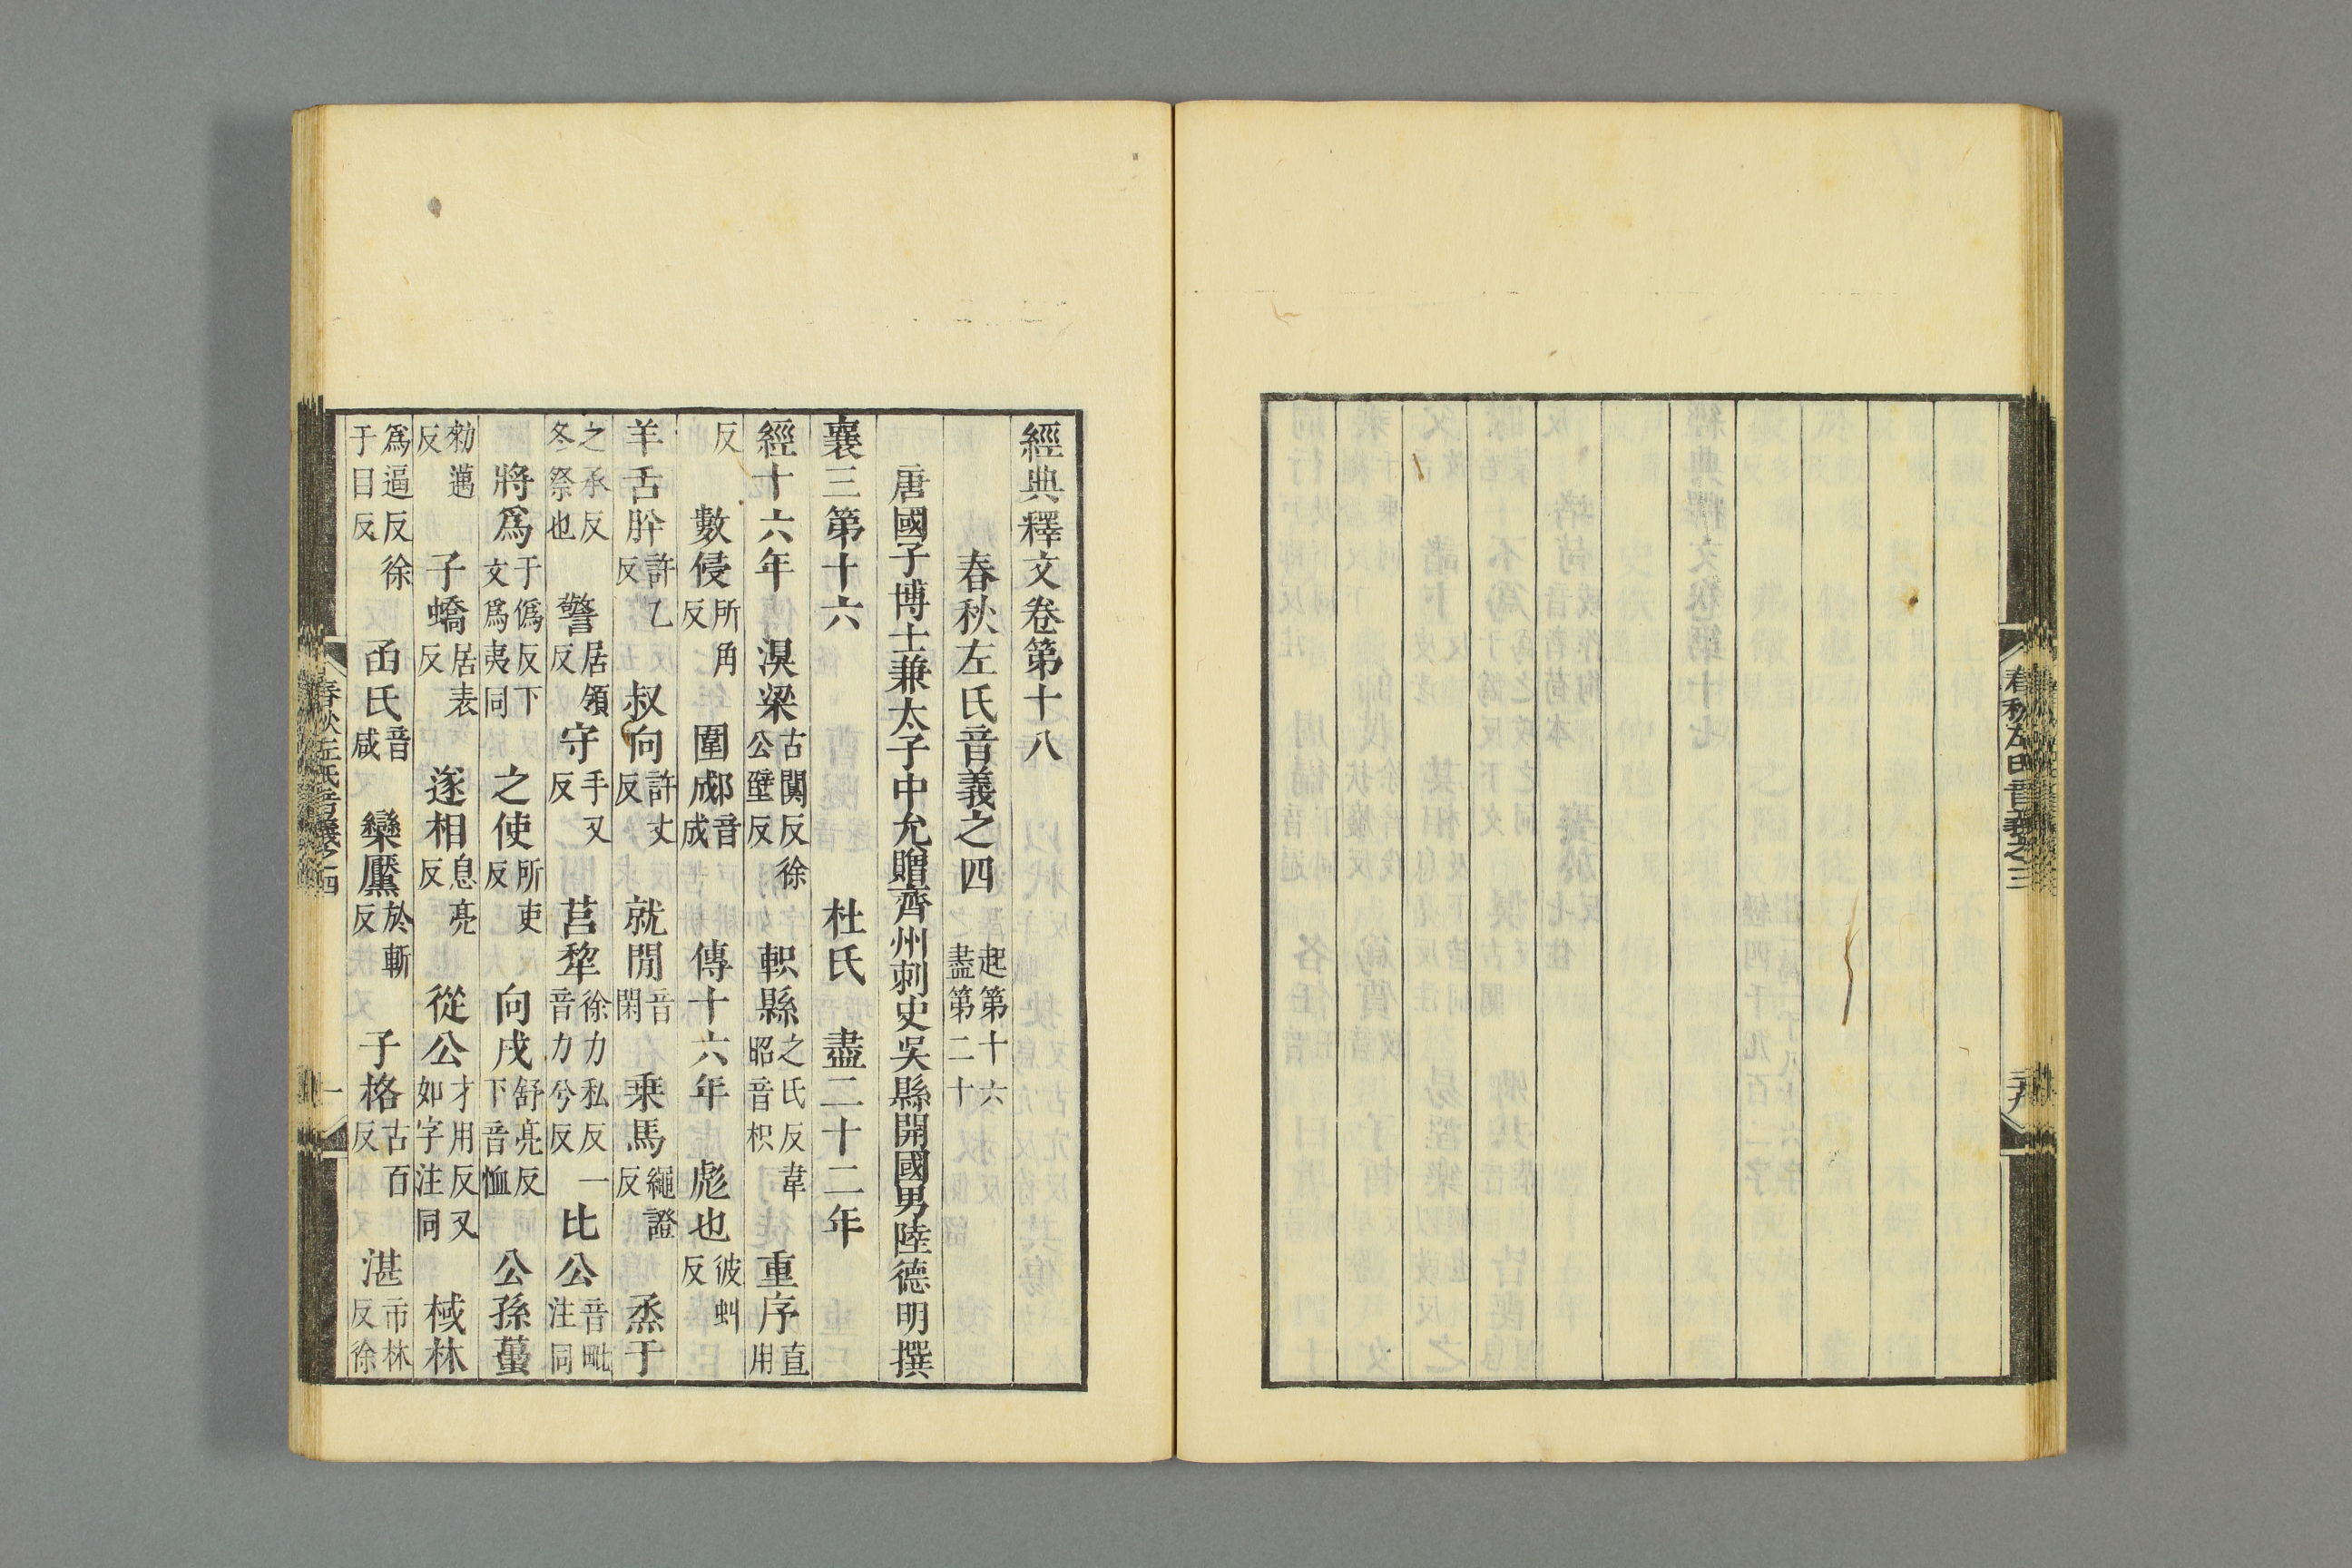 春秋左氏音義之三
經典釋文卷第十八
春秋左氏音義之四 起第十六盡第二十
唐國子博士兼太子中允贈齊州刺史吳縣開國男陸德明撰
襄三第十六 杜氏 盡二十二年
經十六年 湨梁 古闃反徐公壁反 軹縣 之氏反韋昭音枳 重序 直用
反 數侵 所角反 圍郕 音成 傳十六年 彪也 彼虯反
羊舌肸 許乙反 叔向 許丈反 就閒 音閑 乗馬 繩證反 烝于
之承反冬祭也 警 居領反 守 手又反 莒犂 徐力私反一音力兮反 比公 音毗注同
將爲 于僞反下文爲夷同 之使 所吏反 向戌 舒亮反下音恤 公孫蠆
勑邁反 子蟜 居表反 遂相 息亮反 從公 才用反又如字注同 棫林
爲逼反徐于目反 函氏 音咸 欒黶 於斬反 子格 古百反 湛 市林反徐
春秋左氏音義之四
一